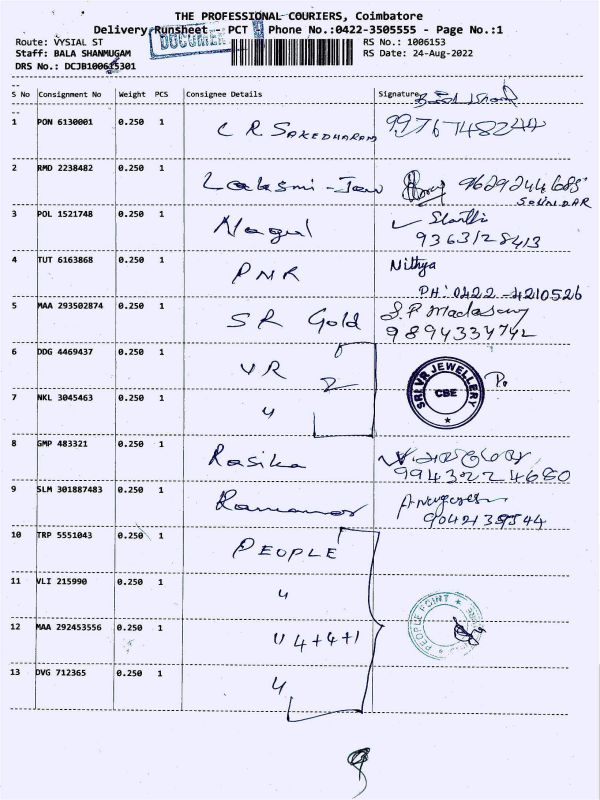 THE PROFESSIONAL COURIERS, Coimbatore
Delivery Runsheet - PCT Phone No.:0422-3505555 - Page No.:1
DOCUMEN
Route: VYSIAL ST RS No.: 1006153
Staff: BALA SHANMUGAM RS Date: 24-Aug-2022
DRS No.: DCJB100615301
S No Consignment No Weight PCS Consignee Details Signature
1 PON 6130001 0.250 1 C R 9976748244
2 RMD 2238482 0.250 1 Laksmi - SOUNDAR
3 POL 1521748 0.250 1 Nagul
9363128413
4 TUT 6163868 0.250 1 PNR Nithya
PH: 0422 - 4210526
5 MAA 293502874 0.250 1 SR Gold S.P
9894334742
6 DDG 4469437 0.250 1 VR 2
SRI VR JEWELLERY
CBE
7 NKL 3045463 0.250 1 "
8 GMP 483321 0.250 1 Rasika
9 SLM 301887483 0.250 1
10 TRP 5551043 0.250 1 PEOPLE
11 VLI 215990 0.250 1 "
PEOPLE POINT
12 MAA 292453556 0.250 1 " 4+4+1
13 DVG 712365 0.250 1 "